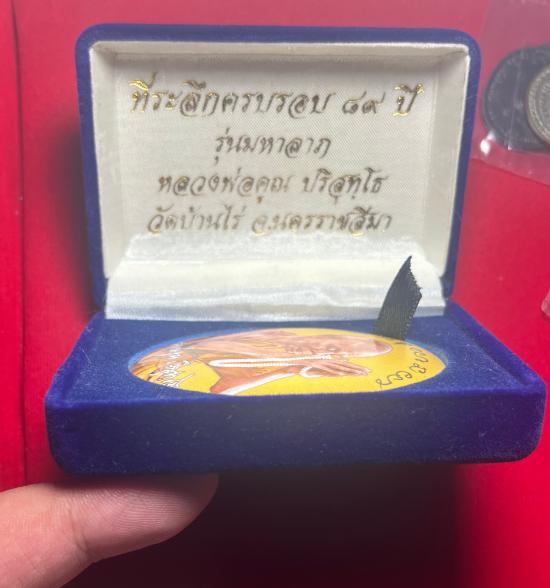 ที่ระลึกครบรอบ ๘๙ ปี
รุ่นมหาลาภ
หลวงพ่อคูณ ปริสุทฺโธ
วัดบ้านไร่ จ.นครราชสีมา